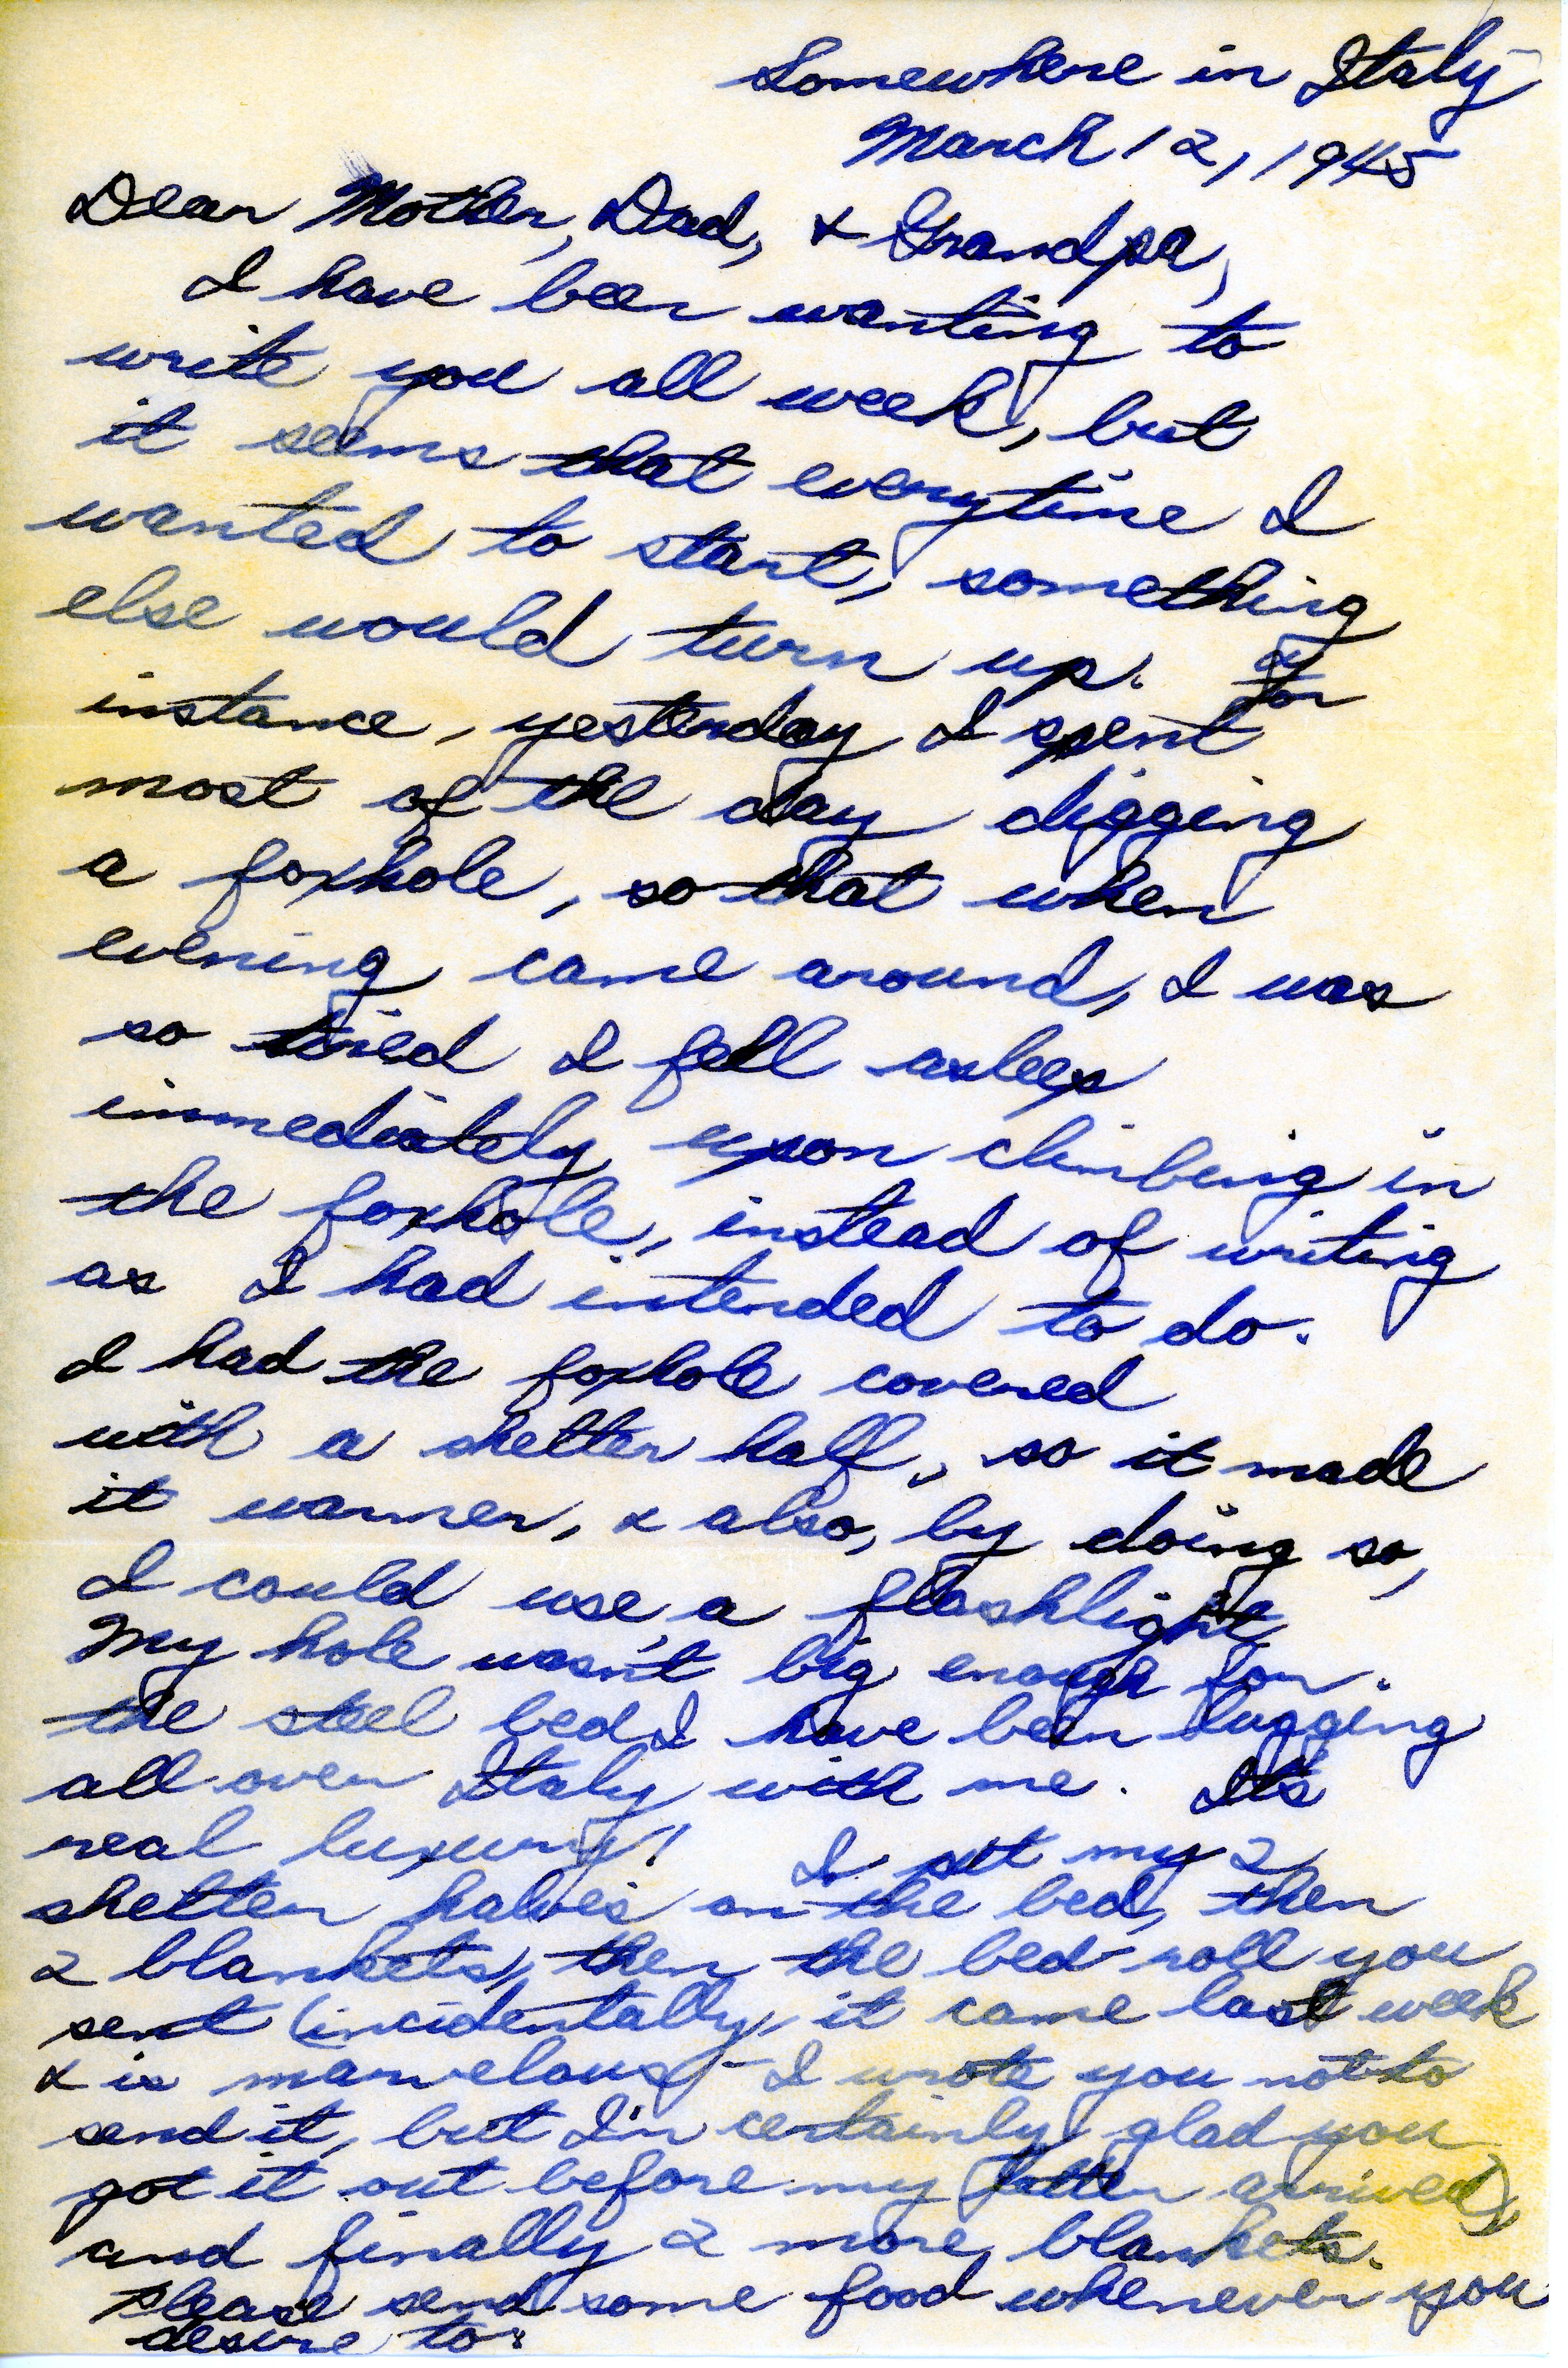 Somewhere in Italy
March 12, 1945
Dear Mother, Dad, & Grandpa,
I have been wanting to
write you all week, but
it seems that everytime I
wanted to start, something
else would turn up. For
instance, yesterday I spent
most of the day digging
a foxhole, so that when
evening came around, I was
so tired I fell asleep
immediately upon climbing in
the foxhole, instead of writing
as I had intended to do.
I had the foxhole covered
with a shelter half, so it made
it warmer, & also, by doing so,
I could use a flashlight.
My hole wasn't big enough for
the steel bed I have been lugging
all over Italy with me. It's
real luxury! I set my 2
shelter halves on the bed, then
2 blankets, then the bed-roll you
sent (incidentally, it came last week
& is marvelous - I wrote you not to
send it, but I'm certainly glad you
got it out before my letter arrived),
and finally 2 more blankets.
Please send some food whenever you
desire to.